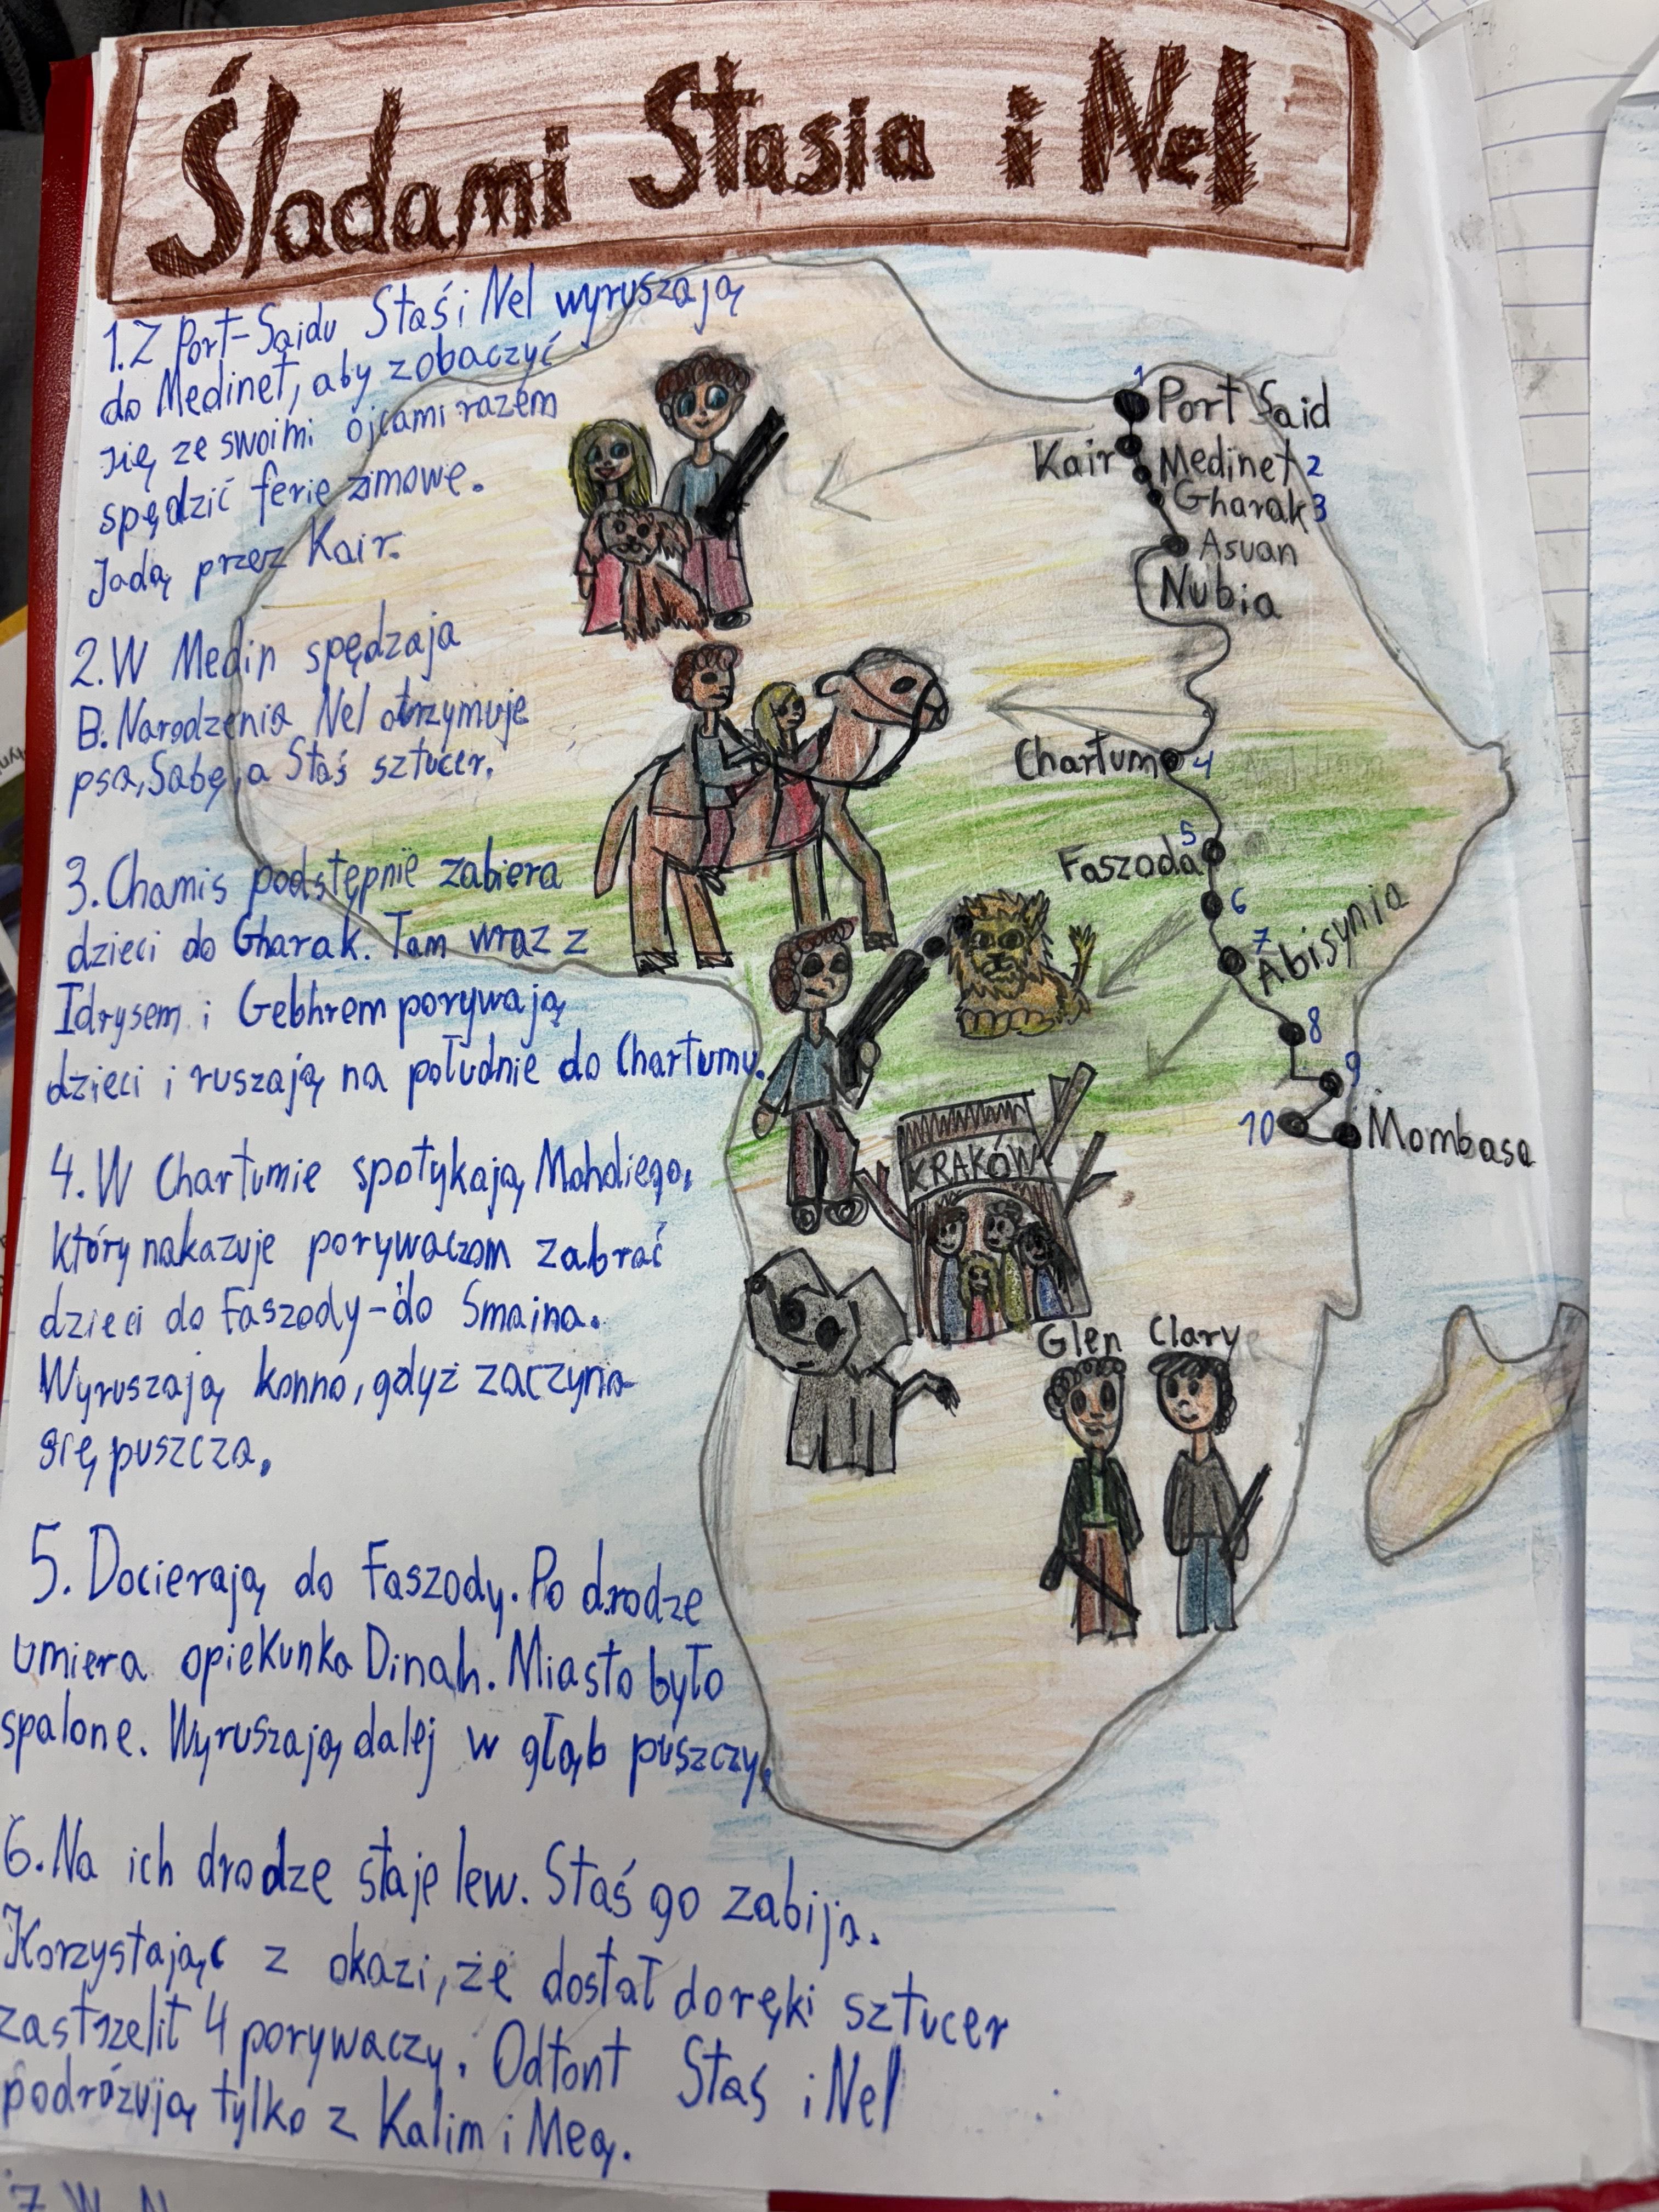 Śladami Stasia i Nel
1. Z Port-Saidu Staś i Nel wyruszają
do Medinet, aby zobaczyć
się ze swoimi ojcami razem
spędzić ferie zimowe.
Jadą przez Kair.
2. W Medin spędzaja
B. Narodzenia Nel otrzymuje
psa, Sabę, a Staś sztucer.
3. Chamis podstępnie zabiera
dzieci do Gharak. Tam wraz z
Idrysem i Gebhrem porywają
dzieci i ruszają na południe do Chartumu.
4. W Chartumie spotykają Mahdiego,
który nakazuje porywaczom zabrać
dzieci do Faszody - do Smaina.
Wyruszają konno, gdyż zaczyna
się puszcza.
5. Docierają do Faszody. Po drodze
umiera opiekunka Dinah. Miasto było
spalone. Wyruszają dalej w głąb puszczy.
6. Na ich drodze staje lew. Staś go zabija.
Korzystając z okazi, że dostał do ręki sztucer
zastrzelił 4 porywaczy. Odtont Staś i Nel
podróżują tylko z Kalim i Meą.
1 Port Said
Kair
Medinet 2
Gharak 3
Asuan
Nubia
Chartum 4
5
Faszoda
6
7
Abisynia
8
9
10
Mombasa
KRAKÓW
Glen Clary
7. W N